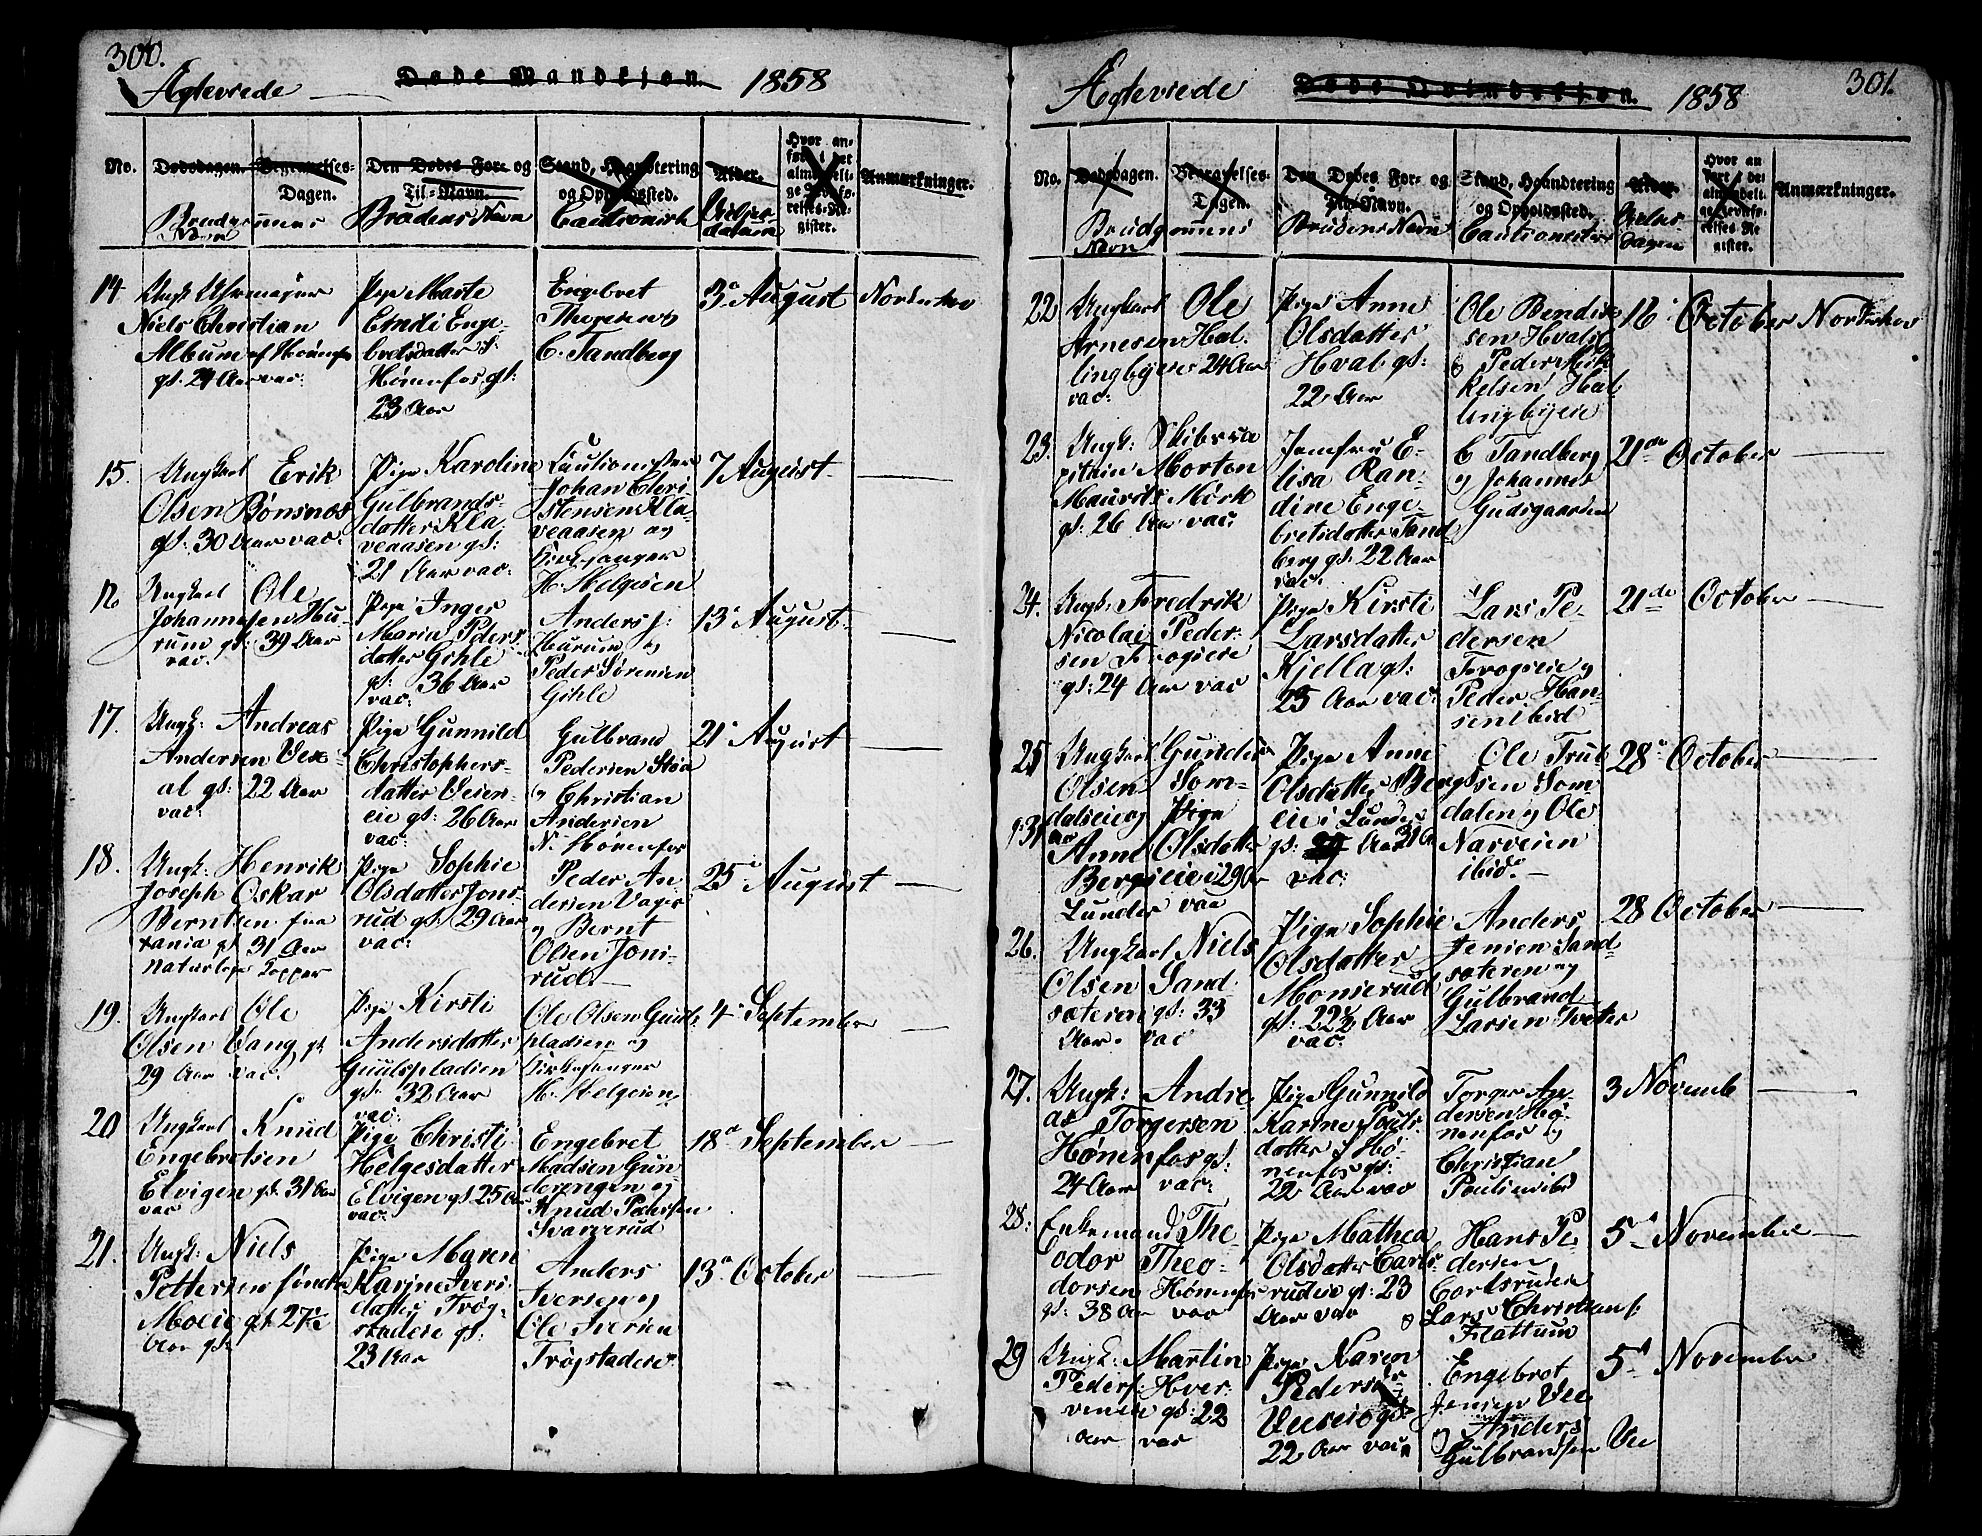 300.
Ægtevrede
Døde Mandkjøn.
1858
No.
Dødsdagen.
Begravelses-
Dagen.
Den Dødes For- og
Til-Navn.
Stand, Haandtering
og Opholdssted.
Alder.
Hvor an-
ført i det
almindeli-
ge Jevnfø-
relses-Re-
gister.
Anmærkninger.
Brudgommes
Navn
Brudens Navn
Cautionister
Vielses
datum
14
Ungk Uhrmager
Niels Christian
Album af Hønefos
gl: 24 Aar vac:
Pige Marte
Enge-
bretsdatter
Hønenfos gl:
23 Aar
Engebret
og
C. Tandberg
3 August
Norderhov
15.
Ungkarl Erik
Olsen Bønsnæs
gl: 30 Aar vac:
Pige Karoline
Gulbrands-
datter Kla-
veaasen gl:
21 Aar vac:
Cautionister
Johan Chri-
stensen Kla-
veaasen og
Kirkesanger
H. Helgesen
7 August
16
Ungkarl Ole
Johannesen Hu-
rum gl: 39 Aar
vac:
Pige Inger
Maria Peders
datter Gihle
gl: 36 Aar
vac:
Anders J:
Hurum og
Peder Sørensen
Gihle
13 August
17.
Ungk: Andreas
Andersen Vex-
al gl: 22 Aar
vac:
Pige Gunnild
Christophers-
datter Veien-
eie gl: 26 Aar
vac:
Gulbrand
Pedersen Støa
og Christian
Andersen
N. Hønenfos
21 August
18.
Ungk: Henrik
Joseph Oskar
Berntsen fra
rania gl 31 Aar
Naturlige Kopper
Pige Sophie
Olsdatter Jons-
rud gl: 29 Aar
vac:
Peder An
dersen Vager
og Bernt
Olsen Jons-
rud
25 August
19.
Ungkarl Ole
Olsen Vang gl
29 Aar vac:
Pige Kirsti
Andersdatter
Guulspladsen
gl: 32 Aar
vac:
Ole Olsen Guuls
pladsen og
Kirkesanger
H. Helgesen
4 September
20
Ungkarl Knud
Engebretsen
Elvigen gl: 31 Aar
vac
Pige Christi
Helgesdatter
Elvigen gl: 25 Aar
vac:
Engebret
Madsen Gun
derengen og
Knud Pedersen
Svarverud
18 September
21.
Ungk: Niels
Pettersen Søndre
Moeie gl 27½
Aar gl:
Pige Maren
Karine Ivers
datter Trøg-
stadeie gl:
23 Aar
Anders
Iversen og
Ole Iversen
Trøgstadeie
13 October
Ægtevrede
Døde Qvindekjøn.
1858
301.
No.
Dødsdagen.
Begravelses-
Dagen.
Den Dødes For- og
Til-Navn.
Stand, Haandtering
og Opholdssted.
Alder.
Hvor an-
ført i det
almindeli-
ge Jevnfø-
relses-Re-
gister.
Anmærkninger.
Brudgommens
Navn
Brudens Navn
Cautionister
Vielses
dagen
22
Ungkarl Ole
Arnesen Hal-
lingbyeie 24 Aar
vac:
Pige Anne
Olsdatter
Hval gl:
22 Aar
Ole Bendik
sen Hval
og Peder Mik
kelsen Hal
lingbyeie
16 October
Norderhov
23.
Ungk: Skibsca
pitain Morten
Maurits Mörk
gl: 26 Aar vac:
Jomfru E-
lisa Ran-
dine Enge-
bretsdatter Tand
berg gl: 22 Aar
vac.
C Tandberg
og Johannes
Gudsgaarden
21de October
24.
Ungk: Fredrik
Nicolai Peder-
sen Frogseie
gl: 24 Aar vac
Pige Kirsti
Larsdatter
Kjella gl:
25 Aar vac:
Lars Pe-
dersen
Frogseie og
Peder Han-
sen ibid
21de October
25
Ungkarl Gunder
Olsen Som-
dalseie og Pige
gl: 31
Aar
Anne Olsdatter
Bergseie i 29 Aar
Lunder vac
Pige Anne
Olsdatter Bergs
eie i Lunder
gl: 29 Aar 31 A
vac:
Ole Trul
sen Som
dalen og Ole
Narveien
ibid.
28 October
26.
Ungkarl Niels
Olsen Sand
sæteren gl: 33
Aar. vac
Pige Sophie
Olsdatter
Monserud
gl: 22½ Aar
vac:
Anders
Jensen Sand
sæteren og
Gulbrand
Larsen Tveter
28 October
27.
Ungk: Andre-
as Torgersen
Hønenfos gl:
24 Aar vac:
Pige Gunnild
Karine Pouls-
datter S Hø-
nenfos gl:
22 Aar vac
Torger An-
dersen Hø-
nenfos og
Christian
Poulsen ibd
3 Novemb
28:
Enkemand The-
odor Theo-
dorsen Hønenfos
gl: 38 Aar vac
Pige Mathea
Olsdatter Carls-
rudeie gl: 23
Aar vac
Hans Pe-
dersen
Carlsrudeie
og Lars Christians:
Flattum
5 November
29
Ungk: Martin
Peders: Hver-
veneie gl: 22
Aar vac
Pige Karen
Pedersdr
Veeseie gl:
22 Aar vac
Engebret
Jensen Vee
og Anders
Gulbrandsen Vee
5 November